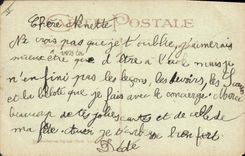 CARTE POSTALE
Chère Ninette
Ne crois pas que je t'oublie, j'aimerais
mieux être que d'être à l' mais je
n'en finis pas les leçons, les devoirs, les
et la belote que je fais avec le concierge. Merci
beaucoup de tes jolies cartes et de celle de
ma fête. je t' bien fort
Dédé